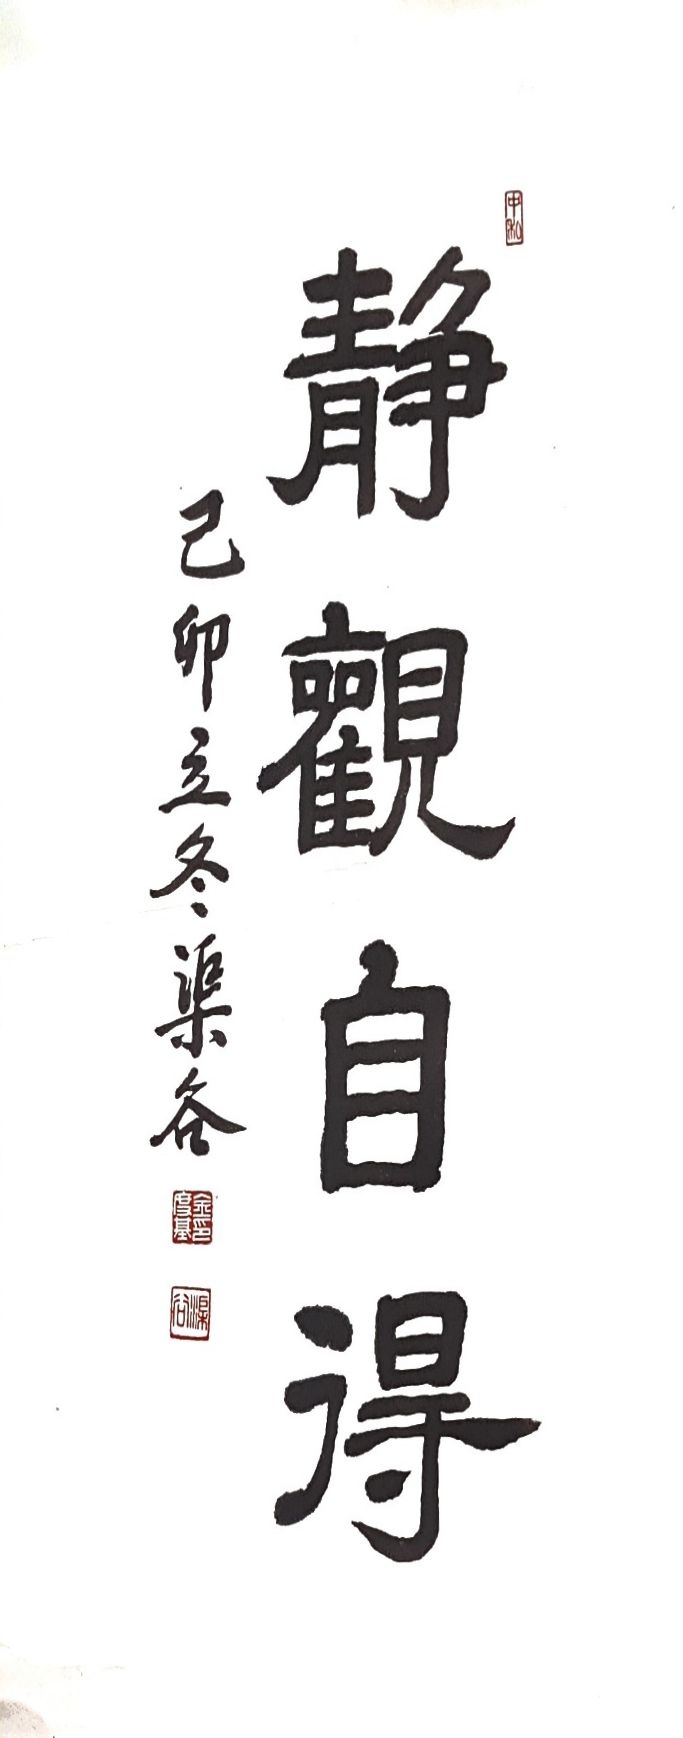 中和
靜觀自得
己卯立冬渠谷
金度基印
渠谷